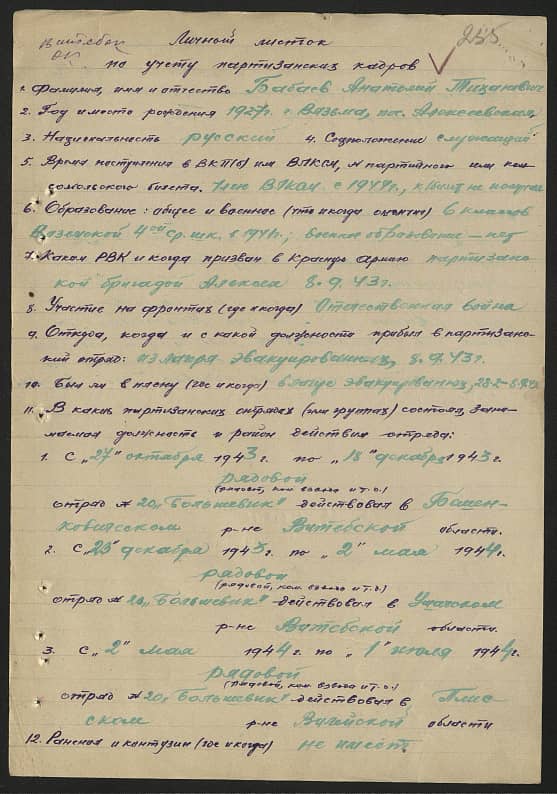 Витебск
ОК.
255
Личный листок
по учету партизанских кадров
1. Фамилия, имя и отчество Бабаев Анатолий
2. Год и место рождения 1927г. г. Вязьма, пос. Алексеевская
3. Национальность русский 4. Соцположение служащий
5. Время поступления в ВКП(б) или ВЛКСМ, № партийного или ком-
сомольского билета. Член ВЛКСМ с 1944г., к/билет не получил
6. Образование: общее и военное (что и когда окончил) 6 классов
Вяземской 4ой ср. шк. в 1941г.; военное образование – нет
7. Каким РВК и когда призван в Красную армию партизанс-
кой бригадой Алексея 8.9.43г.
8. Участие на фронтах (где и когда) Отечественная война
9. Откуда, когда и с какой должности прибыл в партизанс-
кий отряд: из лагеря эвакуированных, 8.9.43г.
10. Был ли в плену (где и когда) в лагере эвакуированных,
11. В каких партизанских отрядах (или группах) состоял, зани-
маемая должность и район действия отряда:
1. С „27“ октября 1943г. по „18“ декабря 1943г.
рядовой
(рядовой, ком. взвода и т.д.)
отряд № 20 „Большевик“ действовал в Бешен-
ковичском р-не Витебской области.
2. С „23“ декабря 1943г. по „2“ мая 1944г.
рядовой
(рядовой, ком. взвода и т.д.)
отряд № 20 „Большевик“ действовал в Ушачском
р-не Витебской области.
3. С „2“ мая 1944г. по „1“ июля 1944г.
рядовой
(рядовой, ком. взвода и т.д.)
отряд № 20 „Большевик“ действовал в Плис-
ском р-не Вилейской области
12. Ранения и контузии (где и когда) не имеет